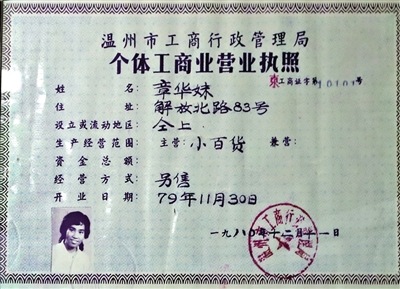 温州市工商行政管理局
个体工商业营业执照
东工商证字第10101号
姓名 章华妹
住址 解放北路83号
设立或流动地区: 仝上
生产经营范围: 主营: 小百货 兼营:
资金总额:
经营方式: 另售
开业日期: 79年11月30日
一九八〇年十二月十一日